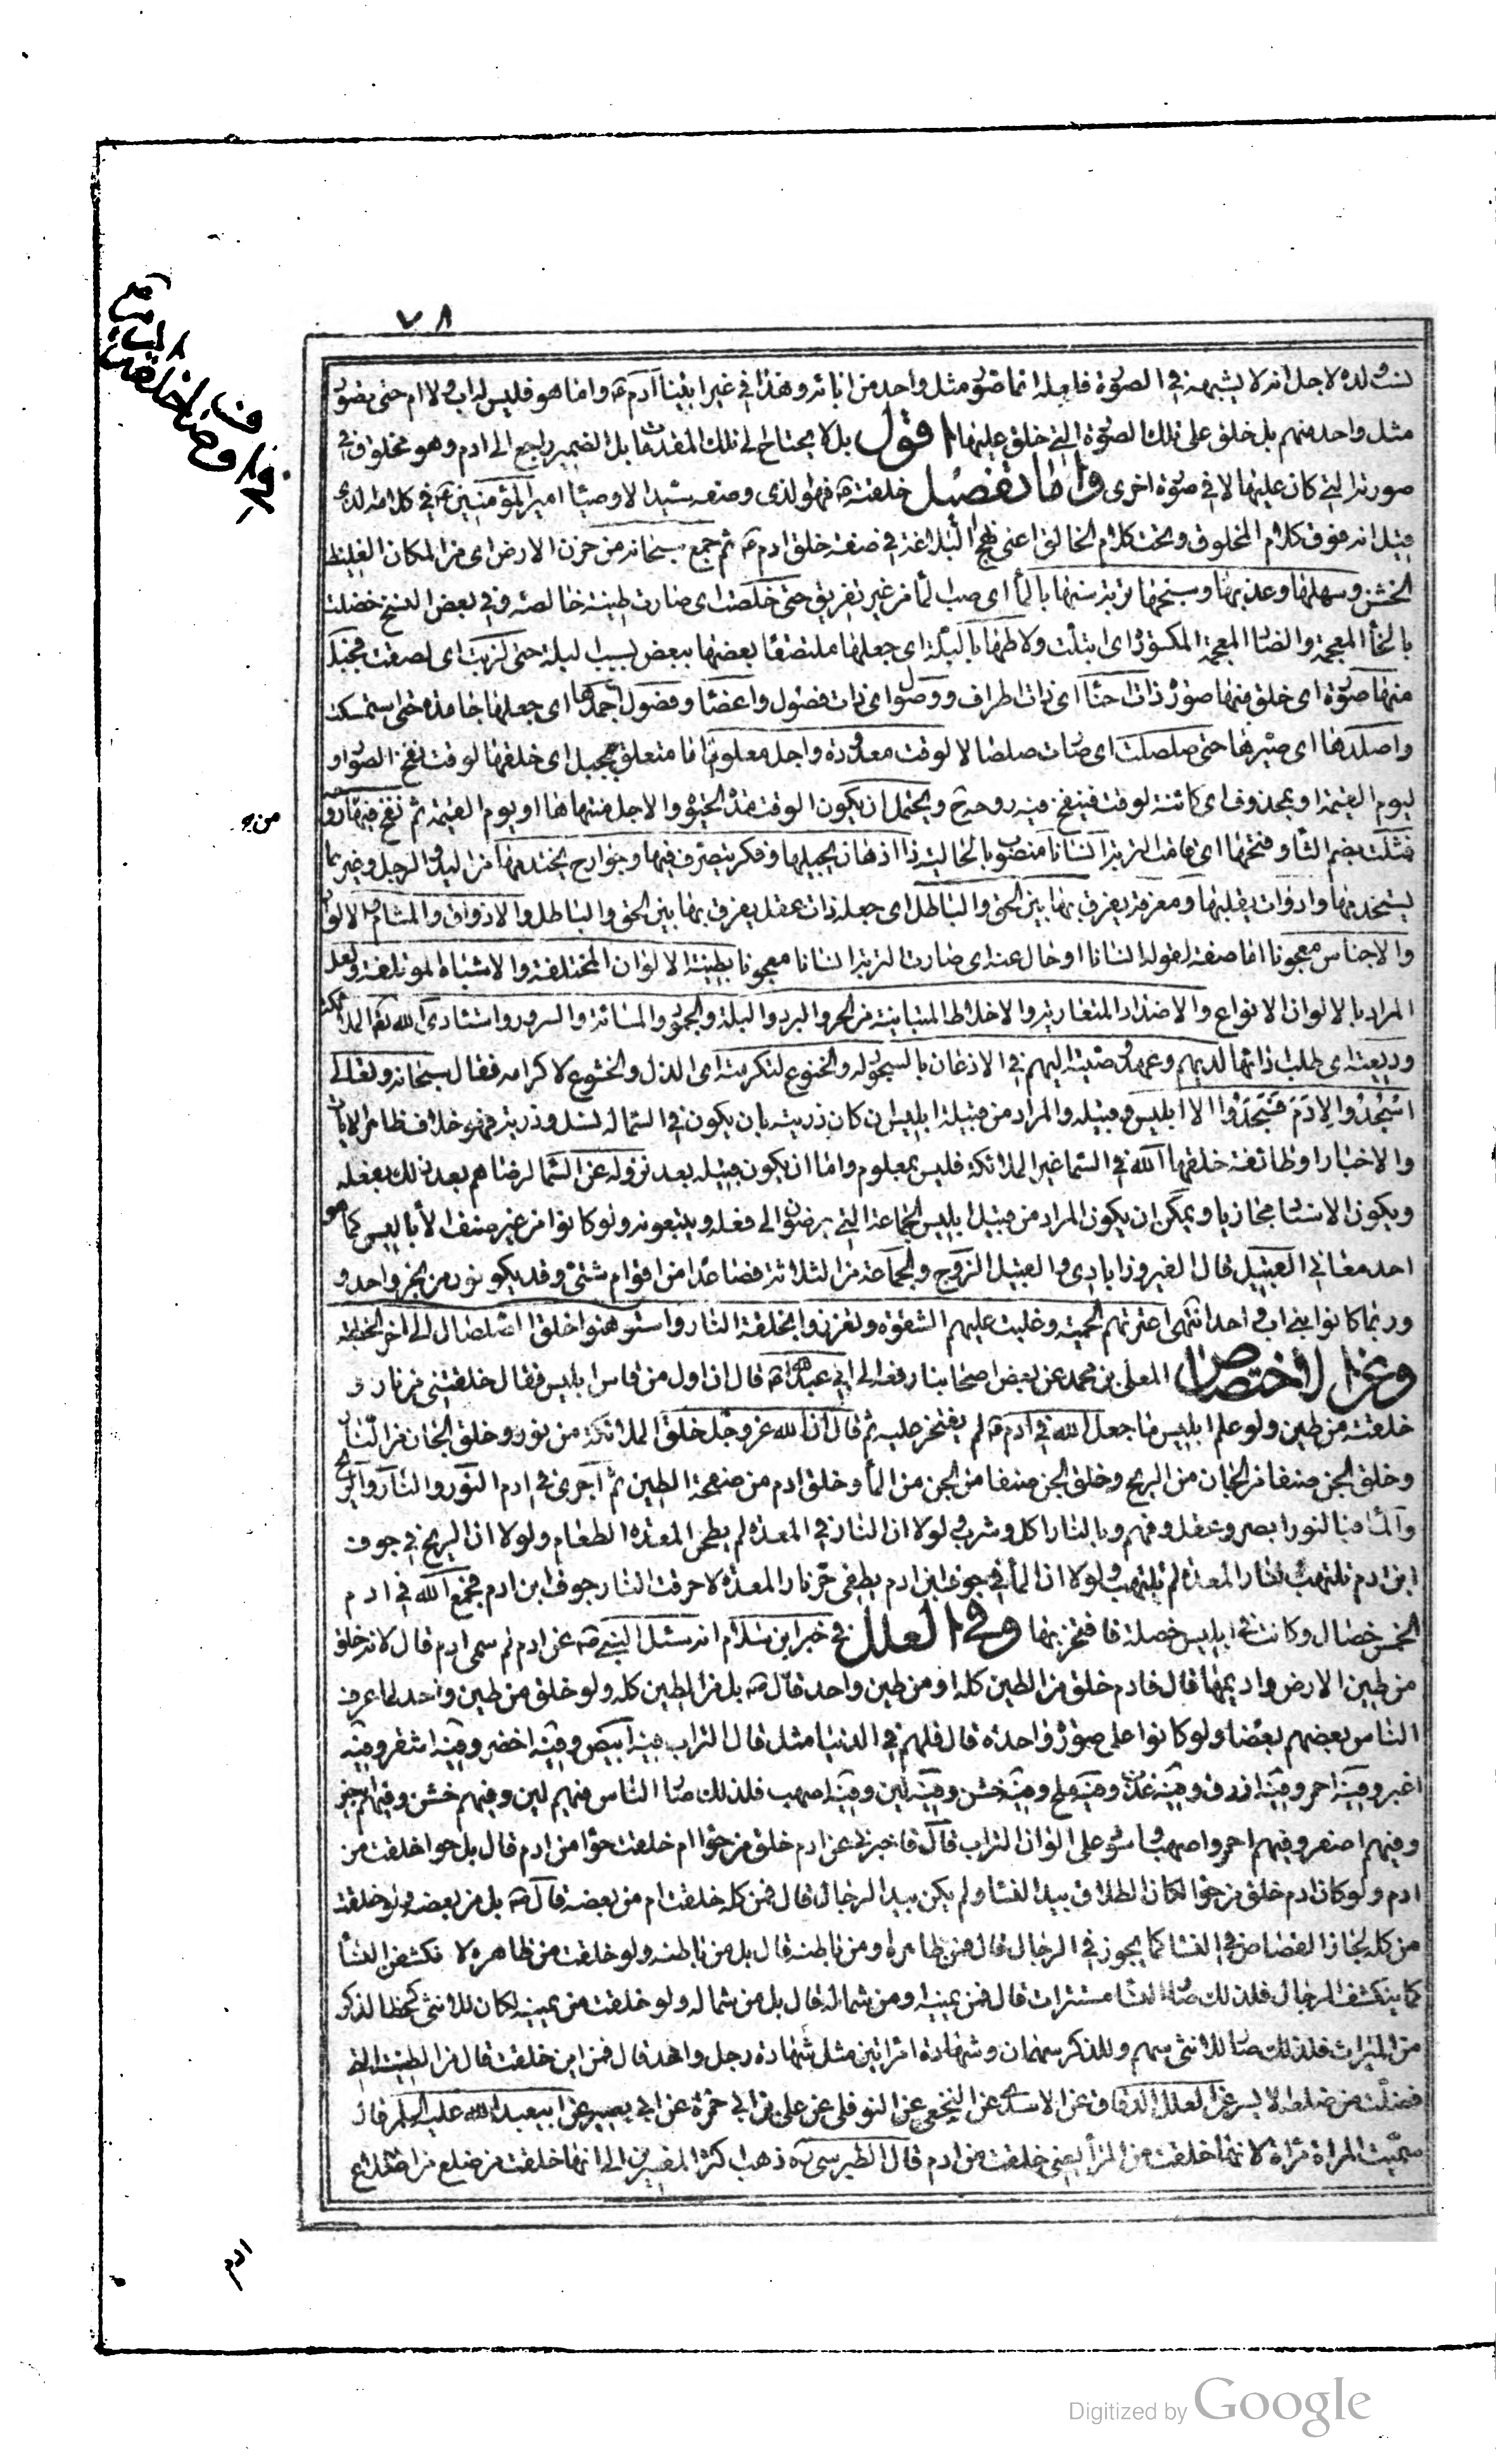 ٧٨
لولده لاجل انه لا يشبهه في الصورة فانه انما صور مثل واحد من ابائه وهذا في غير ابينا آدم ع واما هو فليس له اب ولا ام حتى يصور
مثل واحد منهم بل خلق على تلك الصورة التي خلق عليها اقول بل لا يحتاج الى تلك المقدمات بل الضمير راجع الى ادم وهو مخلوق في
صورته التي كان عليها لا في صورة اخرى واما تفصيل خلقته ع فهو الذى وصفه سيد الاوصيا امير المؤمنين ع في كلامه الذى
قيل انه فوق كلام المخلوق وتحت كلام الخالق اعنى نهج البلاغة في صفة خلق ادم ع ثم جمع سبحانه من حزن الارض اى من المكان الغليظ
الخشن وسهلها وعذبها وسبخها تربة سنها بالمآ اى صب المآ من غير تفريق حتى خلصت اى صارت طينة خالصة وفي بعض النسخ خضلت
بالخآ المعجمة والضا المعجمة المكسورة اى ابتلت ولاطها بالبلة اى جعلها ملتصقا بعضها ببعض بسبب البلة حتى لزبت اى لصقت فجبل
منها صورة اى خلق منها صورة ذات احنآ اى ذات اطراف ووصول اى ذات فصول واعضا وفصول اجمدها اى جعلها جامدة حتى استمسكت
واصلدها اى صيرها حتى صلصلت اى صات صلصالا لوقت معدودة واجل معلوم اما متعلق بجبل اى خلقها لوقت نفخ الصور او
ليوم القيمة او بمحذوف اى كائنة لوقت فينفخ فيه روحه ح ويحتمل ان يكون الوقت مدة الحيوة والاجل منتهاها او يوم القيمة ثم نفخ فيها
من رو
فمثلت بضم الثآ وفتحها اى قامت التربة انسانا منصوب بالحالية ذا اذهان يجيلها وفكر يتصرف فيها وجوارح يختدمها من اليد والرجل وغيرهما
يستخدمها وادوات يقلبها ومعرفة يفرق بها بين الحق والباطل اى جعله ذات عقل يفرق بها بين الحق والباطل والاذواق والمشام والالوان
والاجناس معجونا اما صفة لقوله انسانا او حال عنه اى صارت التربة انسانا معجونا بطينة الالوان المختلفة والاشباه المؤتلفة ولعل
المراد بالالوان الانواع والاضداد المتعادية والاخلاط المتباينة من الحر والبرد والبلة والجمود والمسائة والسرور واستئادى الله تع الملائكة
وديعته اى طلب ذاتها لديهم وعهد وصيته اليهم في الاذعان بالسجود له والخنوع لتكرمته اى الذل والخشوع لاكرامه فقال سبحانه وتعالى
اسْجُدُوا لِادَمَ فَسَجَدُوا الا ابليس وقبيله والمراد من قبيلة ابليس ان كان ذريته بان يكون في السما له نسل وذرية فهو خلاف ظاهر الايات
والاخبار او طائفة خلقها الله في السما غير الملائكة فليس بمعلوم واما ان يكون قبيله بعد نزوله عن السما لرضاهم بعد ذلك بفعله
ويكون الاسناد مجازيا ويمكن ان يكون المراد من قبيل ابليس الجماعة التي يرضون الى فعله ويتبعونه ولو كانوا من غير صنف الأباليس كما هو
احد معاني القبيل قال الفيروزابادى والقبيل الزوج والجماعة من الثلاثة فصاعدا من اقوام شتى وقد يكونون من نجر واحد و
وربما كانوا بني اب واحد انتهى اعترتهم الحمية وغلبت عليهم الشقوة وتعززوا بخلقة النار واستوهنوا خلق الصلصال الى اخر الخطبة
وعن الاختصاص المعلى بن محمد عن بعض اصحابنا رفعه الى ابي عبدالله ع قال ان اول من قاس ابليس فقال خلقتنى من نار و
خلقته من طين ولو علم ابليس ما جعل الله في ادم ع لم يفتخر عليه ثم قال ان الله عز وجل خلق الملائكة من نور وخلق الجان من النار
وخلق الجن صنفا من الجان من الريح وخلق الجن صنفا من الجن من المآ وخلق ادم من صفحة الطين ثم اجرى في ادم النور والنار والريح
والمآ فبالنور ابصر وعقل وفهم وبالنار اكل وشرب ولولا ان النار في المعدة لم يطحن المعدة الطعام ولولا ان الريح في جوف
ابن ادم تلتهب نار المعدة لم تلتهب ولولا ان المآ في جوف ابن ادم يطفى حر نار المعدة لاحرقت النار جوف ابن ادم فجمع الله في ادم
الخمس خصال وكانت في ابليس خصلة فافتخر بها وفي العلل في خبر ابن سلام انه سئل النبي ص عن ادم لم سمى ادم قال لانه خلق
من طين الارض واديمها قال فادم خلق من الطين كله او من طين واحد قال ص بل من الطين كله ولو خلق من طين واحد لما عرف
الناس بعضهم بعضا ولو كانوا على صورة واحدة قال فلهم في الدنيا مثل قال التراب فيه ابيض وفيه اخضر وفيه اشقر وفيه
اغبر وفيه احمر وفيه ازرق وفيه عذب وفيه ملح وفيه خشن وفيه لين وفيه اصهب فلذلك صا الناس فيهم لين وفيهم خشن وفيهم ابيض
وفيهم اصفر وفيهم احمر واصهب واسود على الوان التراب قال فاخبرني عن ادم خلق من حوا ام خلقت حوا من ادم قال بل حوا خلقت من
ادم ولو كان ادم خلق من حوا لكان الطلاق بيد النسا ولم يكن بيد الرجال قال فمن كله خلقت ام من بعضه قال ص بل من بعضه ولو خلقت
من كله لجاز القصاص في النسا كما يجوز في الرجال قال فمن ظاهره او من باطنه قال بل من باطنه ولو خلقت من ظاهره لانكشفن النسآ
كما ينكشف الرجال فلذلك صا النسا مستترات قال فمن يمينه او من شماله قال بل من شماله ولو خلقت من يمينه لكان للانثى كحظ الذكر
من الميراث فلذلك صا للانثى سهم وللذكر سهمان وشهادة امراتين مثل شهادة رجل واحد قال فمن اين خلقت قال من الطينة التي
فضلت من ضلعه الايسر عن العلل الدقاق عن الاسدى عن النخعى عن النوفلى عن على بن ابي حمزة عن ابي بصير عن ابيعبد الله عليه السلم قال
سميت المراة مراة لانها خلقت من المرأ يعنى خلقت من ادم قال الطبرسى ره ذهب اكثر المفسرين الى انها خلقت من ضلع من اضلاع
ادم
Digitized by Google